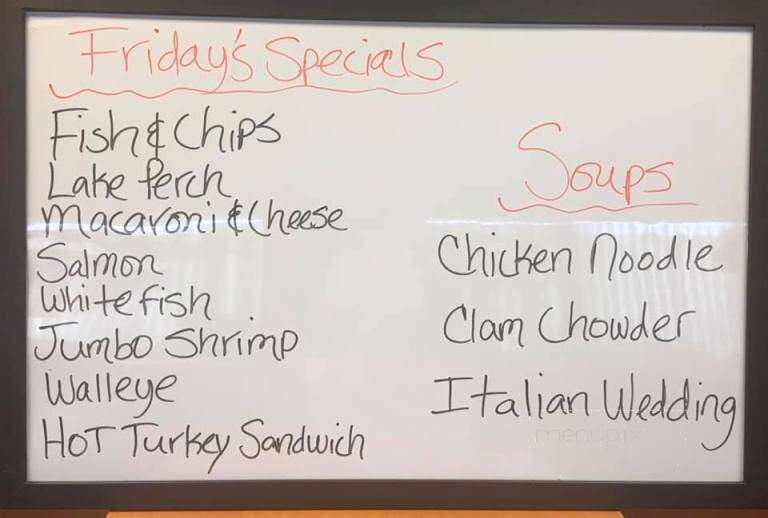 Friday's Specials
Fish & Chips
Lake Perch
Macaroni & Cheese
Salmon
Whitefish
Jumbo Shrimp
Walleye
HOT Turkey Sandwich
Soups
Chicken Noodle
Clam Chowder
Italian Wedding
menupix